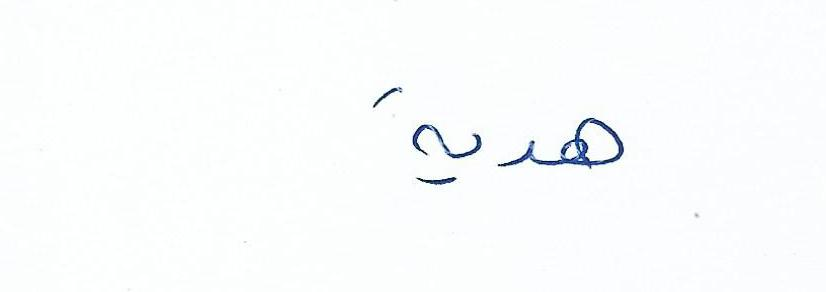 هدية